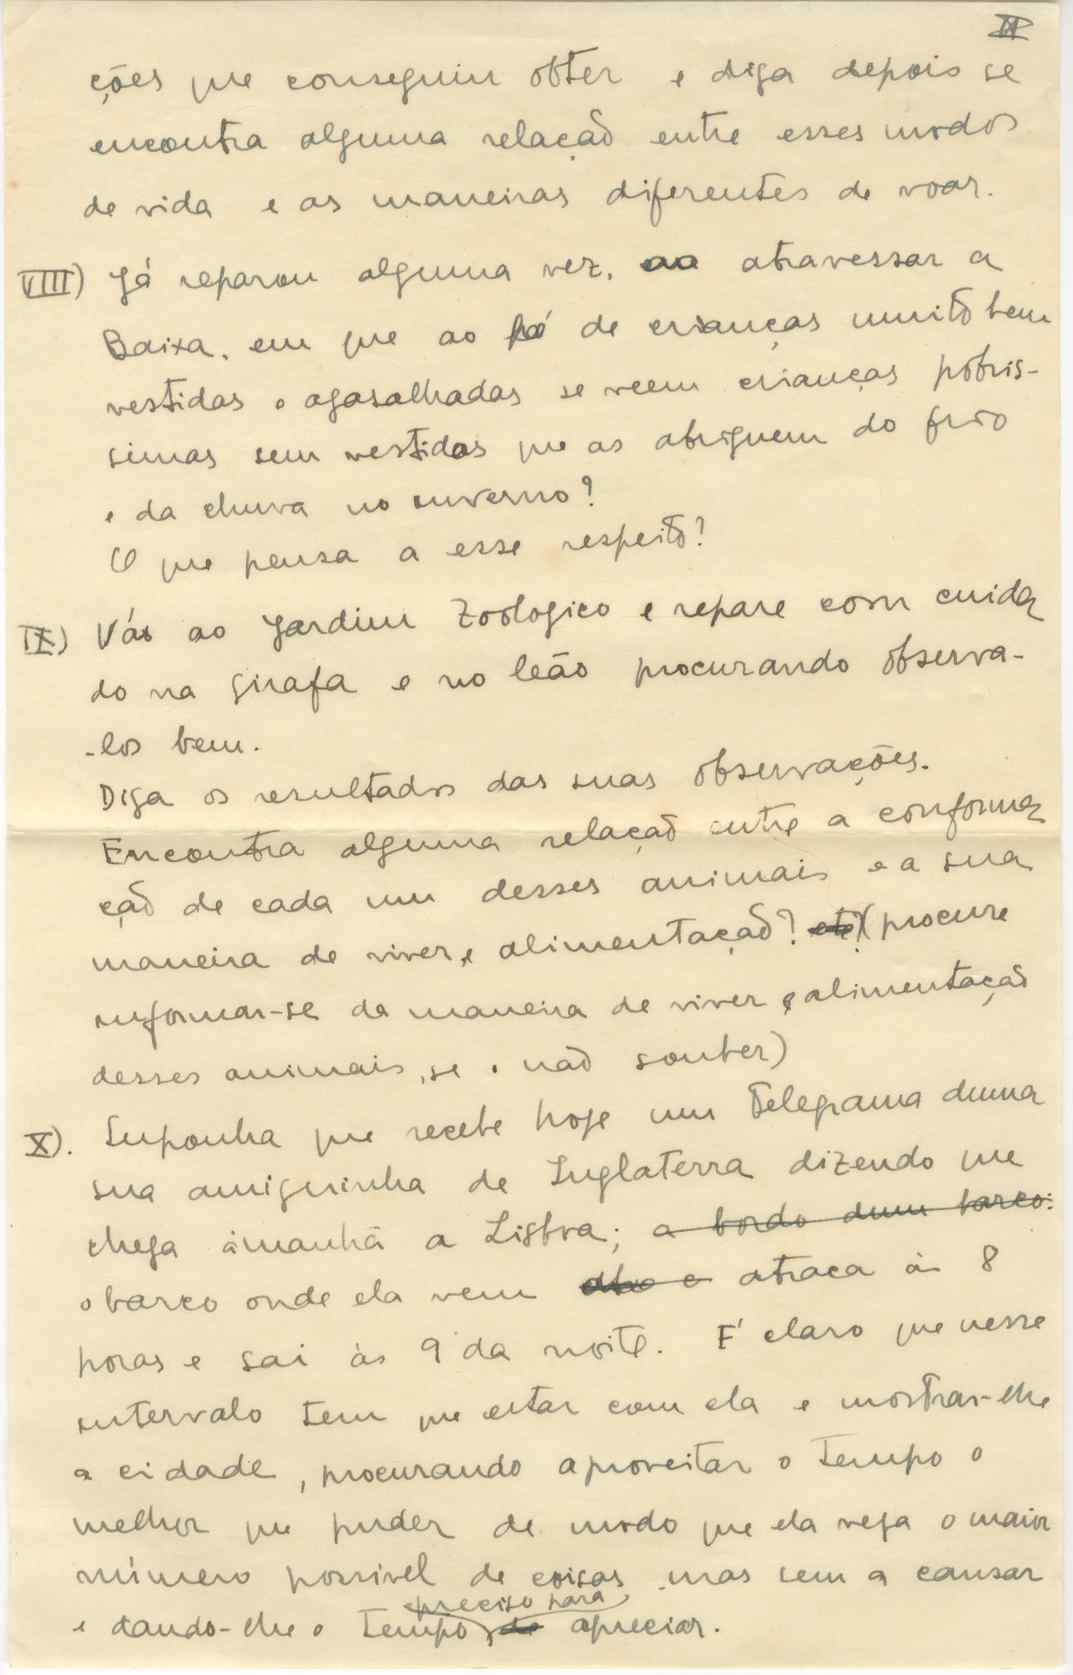 II
ções que conseguiu obter e diga depois se
encontra alguma relação entre esses modos
de vida e as maneiras diferentes de voar.
VIII) Já reparou alguma vez, ao atravessar a
Baixa, em que ao pé de crianças muito bem
vestidas e agasalhadas se veem crianças pobris-
simas sem vestidos que as abriguem do frio
e da chuva no inverno?
O que pensa a esse respeito?
IX) Vás ao Jardim Zoologico e repare com cuida
do na girafa e no leão procurando observa-
-los bem.
Diga os resultados das suas observações.
Encontra alguma relação entre a conforma
ção de cada um desses animais e a sua
maneira de viver e alimentação? (procure
informar-se da maneira de viver e alimentação
desses animais, se o não souber)
X). Suponha que recebe hoje um telegrama duma
sua amiguinha de Inglaterra dizendo que
chega àmanhã a Lisboa; a bordo dum barco.
o barco onde ela vem atraca às 8
horas e sai às 9 da noite. É claro que nesse
intervalo tem que estar com ela e mostrar-lhe
a cidade, procurando aproveitar o tempo o
melhor que puder de modo que ela veja o maior
número possivel de coisas mas sem a cansar
e dando-lhe o tempo de preciso para apreciar.